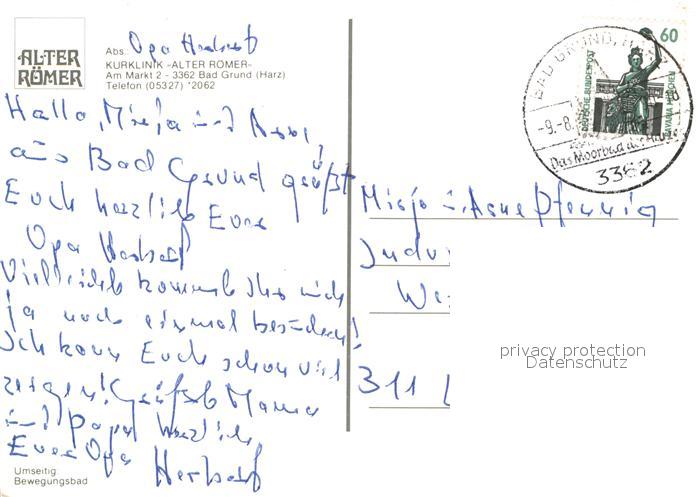 ALTER
RÖMER
Abs. Opa Herbert
KURKLINIK -ALTER RÖMER-
Am Markt 2 - 3362 Bad Grund (Harz)
Telefon (05327) *2062
Hallo, Mirja und
aus Bad Grund grüßt
Euch herzlich Euer
Opa Herbert
Vielleicht kommt Ihr mich
ja noch einmal besuchen!
Ich kann Euch schon viel
zeigen! Grüßt Mama
und Papa herzlich
Euer Opa Herbert
Umseitig:
Bewegungsbad
60
DEUTSCHE BUNDESPOST
BAVARIA MÜNCHEN
BAD GRUND, HARZ
-9.-8.
Das Moorbad
3362
Mirja u. Pfennig
311
privacy protection
Datenschutz